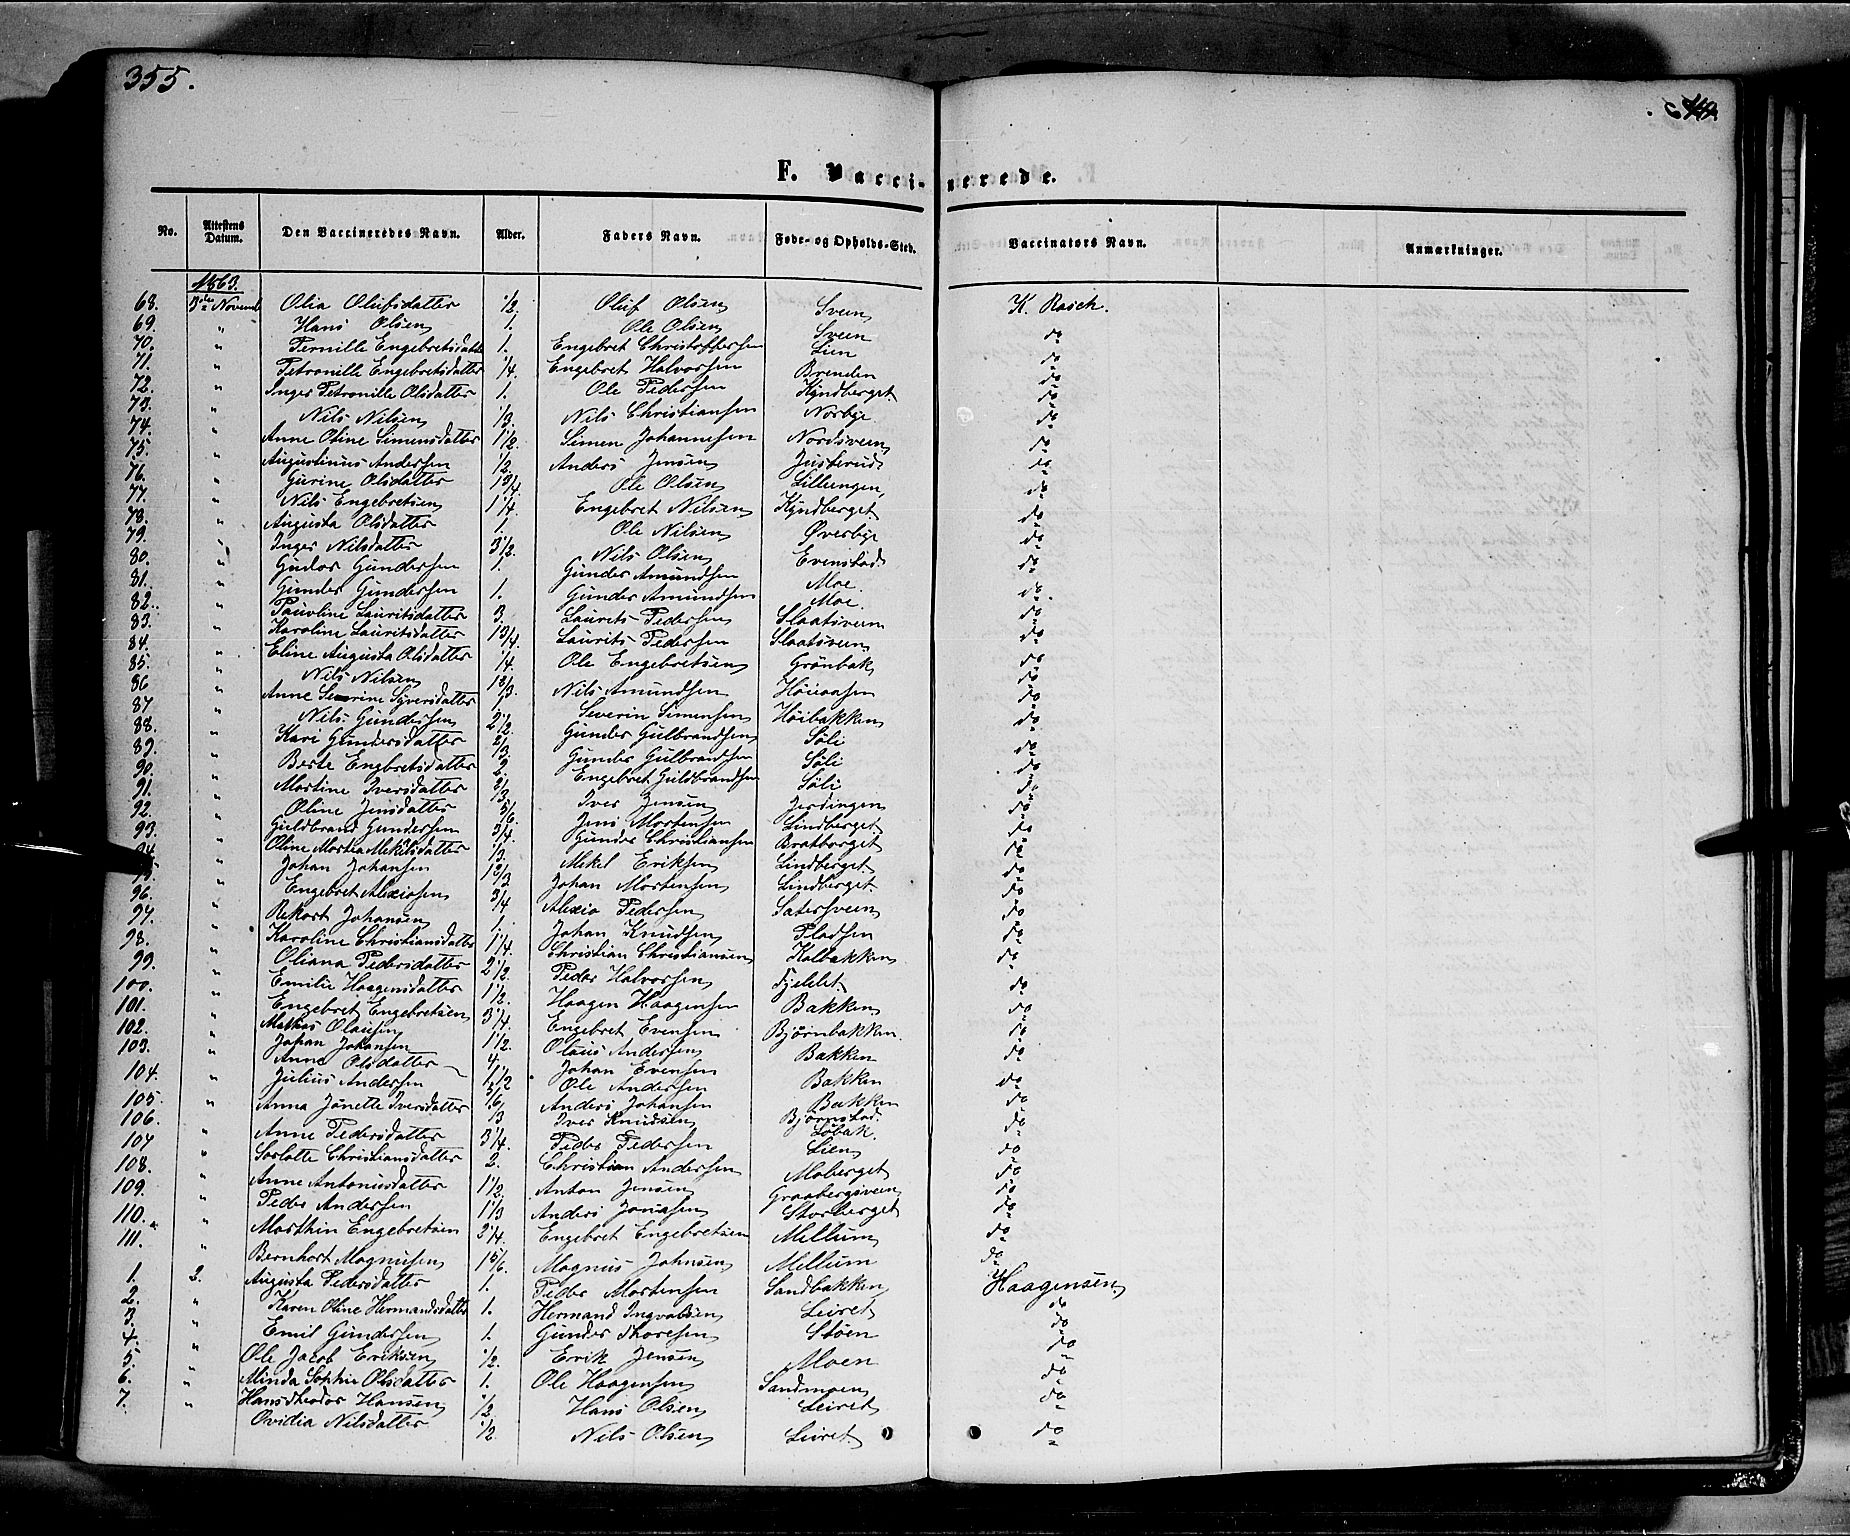 355.
F. Vaccinerede.
No. Attestens Datum. Den Vaccineredes Navn. Alder. Faders Navn. Føde- og Opholds-Sted. Vaccinators Navn. Anmærkninger.
1863.
68. Novemb Olia Olufsdatter 1/2. Oluf Olsen Sveen K. Rasch.
69. " Hans Olsen 1. Ole Olsen Sveen do
70. " Pernille Engebretsdatter 1. Engebret Christoffersen Lien do
71. " Petronille Engebretsdatter 1/4. Engebret Halvorsen Brenden do
72. " Inger Petronille Olsdatter 1. Ole Pedersen Kyndberget do
73. " Nils Nilsen 1/3. Nils Christiansen Norbye do
74. " Anne Oline Simensdatter 1 1/2. Simen Johannesen Nordsveen do
75. " Augustinus Andersen 1/2. Anders Jensen Justerud do
76. " Gurine Olsdatter 1 3/4. Ole Olsen Lillengen do
77. " Nils Engebretsen 1 1/4. Engebret Nilsen Kyndberget do
78. " Augusta Olsdatter 1. Ole Nilsen Øverbye do
79. " Inger Nilsdatter 3 1/2. Nils Olsen Evenstad do
80. " Gudor Gundersen 1. Gunder Amundsen Moe do
81. " Gunder Gundersen 1. Gunder Amundsen Moe. do
82. " Pauoline Lauritsdatter 3. Laurits Pedersen Slaatsveen do
83. " Karoline Lauritsdatter 1 3/4. Laurits Pedersen Slaatsveen do
84. " Eline Augusta Olsdatter 1/4. Ole Engebretsen Grønbak do
85. " Nils Nilsen 1 2/3. Nils Amundsen Høiaasen do
86 " Anne Severine Syversdatter 1. Severin Simensen Høibakken do
87 " Nils Gundersen 2 1/2. Gunder Gulbrandsen Søli do
88. " Kari Gundersdatter 2/3. Gunder Gulbrandsen Søli do
89. " Berte Engebretsdatter 2. Engebret Guldbrandsen Søli do
90. " Martine Iversdatter 2/3. Iver Jensen Jerdingen do
91. " Oline Jensdatter 5/6. Jens Mortensen Lindberget do
92. " Guldbrand Gundersen 3/4. Gunder Christiansen Bratberget do
93. " Oline Martea Mekelsdatter 1/3. Mekel Eriksen Lindberget do
94. " Johan Johansen 1 2/3. Johan Mortensen Lindberget do
95. " Engebret Alexiasen 3/4 Alexia Pedersen Satersveen do
96. " Rikart Johansen 1. Johan Knudsen Pladsen do
97. " Karoline Christiansdatter 1 1/4. Christian Christiansen Kolbakken do
98. " Oliana Pedersdatter 2 1/2. Peder Halvorsen Fjeldet do
99. " Emilie Haagensdatter 1 1/2. Haagen Haagensen Bakken do
100. " Engebret Engebretsen 3/4. Engebret Evensen Bjørnbakken do
101. " Mathias Olausen 1 1/2. Olaus Andersen Bakken do
102. " Johan Johansen 4. Johan Evensen Bakken do
103. " Anne Olsdatter 1 1/2 Ole Andersen Bakken do
104. " Julius Andersen 5/6. Anders Johansen Bjørnstad do
105. " Anna Jonette Iversdatter 1/3 Iver Knudsen Løbak. do
106. " Anne Pedersdatter 3 1/4. Peder Pedersen Lien do
107 " Sarlotte Christiansdatter 2. Christian Andersen Moberget do
108. " Anne Antonusdatter 1 1/2. Anton Jensen Graabergsveen do
109. " Peder Andersen 1 1/3 Anders Jonasen Storberget do
110. " Marthin Engebretsen 3/4. Engebret Engebretsen Mellum do
111. " Bernhart Magnusen 1 5/6. Magnus Johnsen Mellum do
1. 2. Augusta Pedersdatter 1. Peder Mortensen Sandbakken Haagensen
2. " Karen Oline Hermandsdatter 1. Hermand Ingvalsen Leiret do
3. " Emil Gundersen 1. Gunder Thoresen Støen do
4. " Ole Jacob Eriksen 1/2. Erik Jensen Moen do
5. " Minda Sophie Olsdatter 1. Ole Haagensen Sandmoen do
6. " Hans Theodor Hansen 1/2 Hans Olsen Leiret do
7. " Ovidia Nilsdatter 1/2. Nils Olsen Leiret do